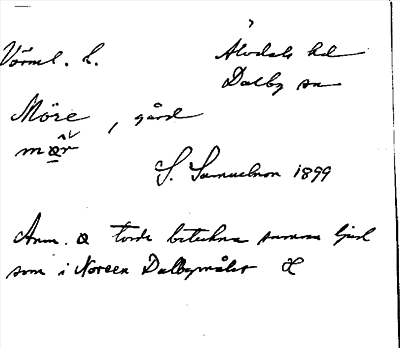 Värml. l.
Älvdals hd
Dalby sn
Möre, gård
S. Samuelson 1899
Anm. torde beteckna samma ljud
som i Noreen Dalbymålet